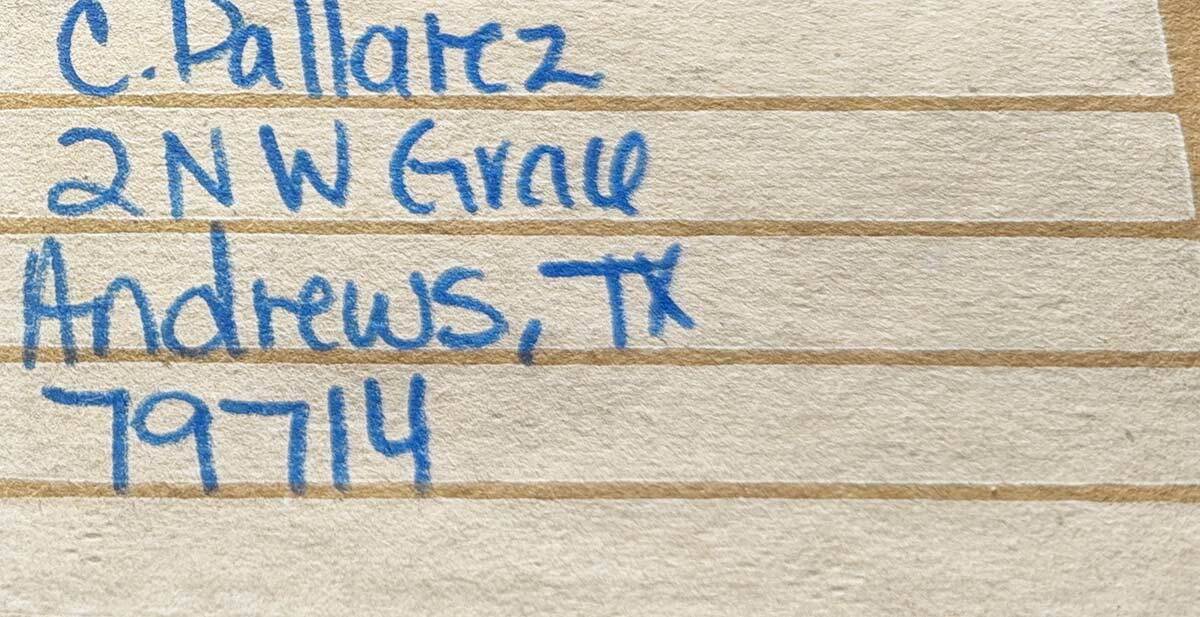 C. Pallarez
2 NW Grace
Andrews, TX
79714